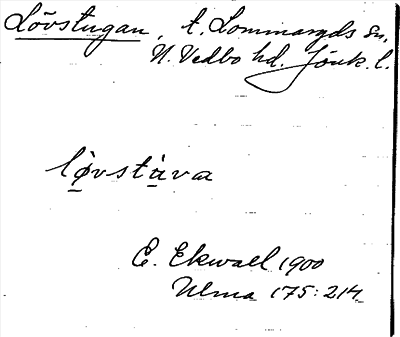 Lövstugan, t. Lommaryds sn.
N. Vedbo hd. Jönk. l.
lø̱vstu̱va
E. Ekwall 1900
Ulma 175:214